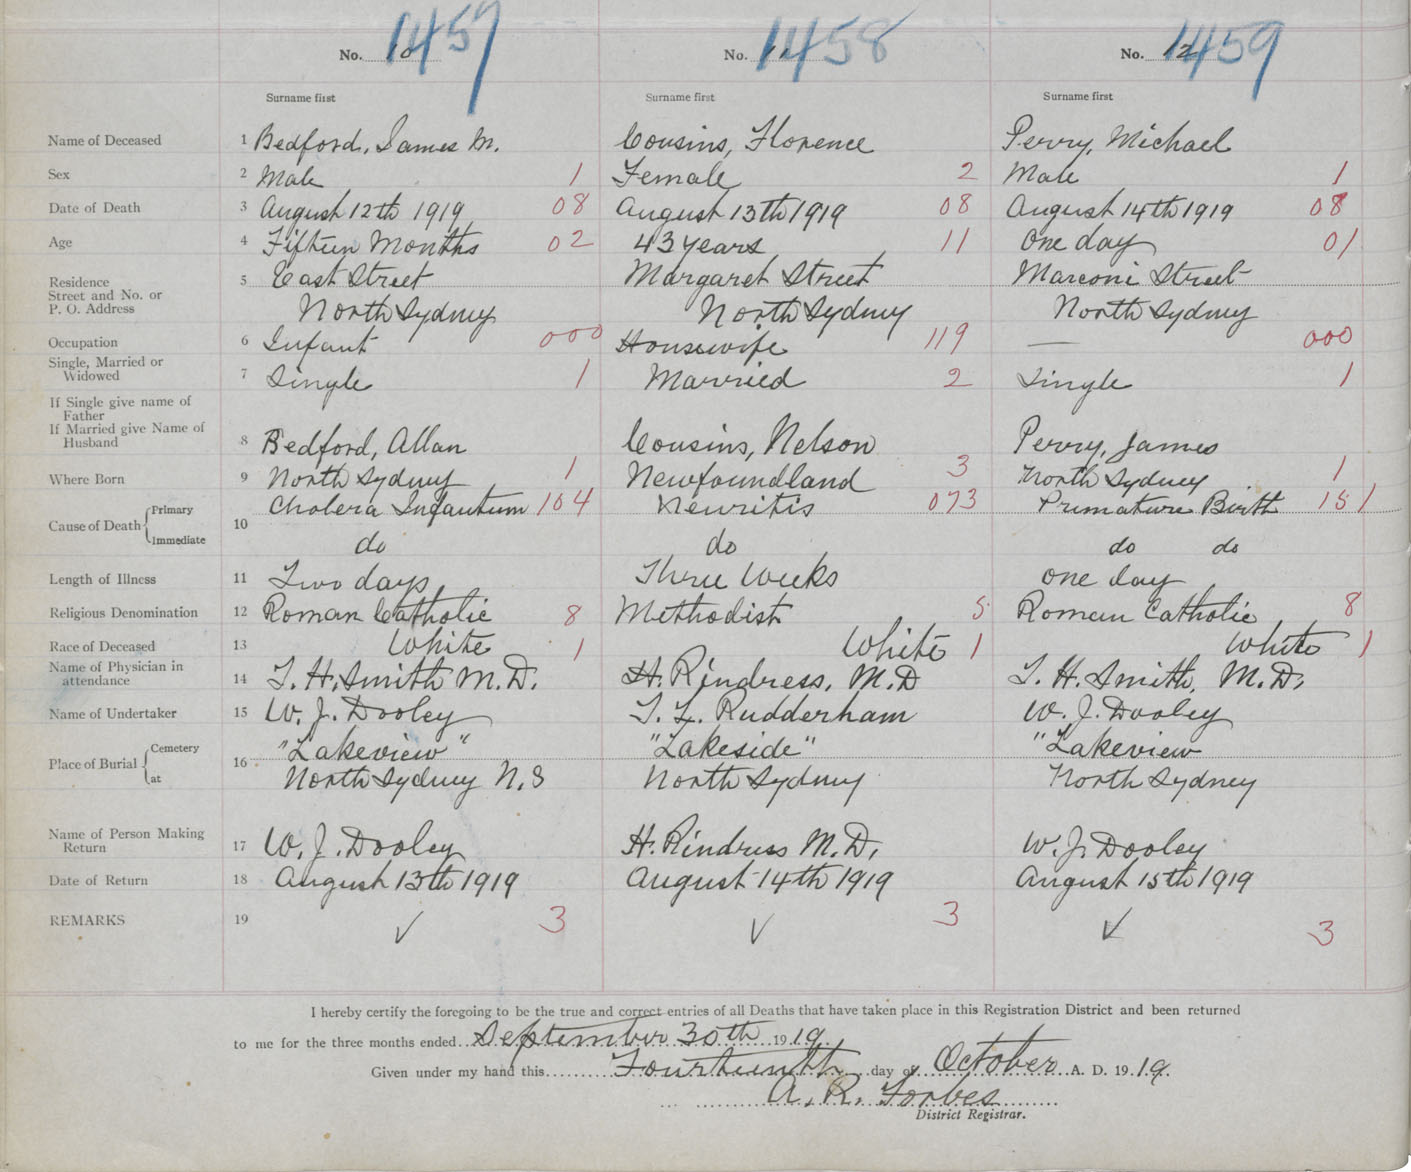 1457 1458 1459
No. 10 No. 11 No. 12
Surname first Surname first Surname first
Name of Deceased 1 Bedford, James M. Cousins, Florence Perry, Michael
Sex 2 Male 1 Female 2 Male 1
Date of Death 3 August 12th 1919 08 August 13th 1919 08 August 14th 1919 08
Age 4 Fifteen Months 02 43 years 11 One day 01
Residence
Street and No. or
P. O. Address
5 East Street Margaret Street Marconi Street
North Sydney North Sydney North Sydney
Occupation 6 Infant 000 Housewife 119 — 000
Single, Married or
Widowed
7 Single 1 Married 2 Single 1
If Single give name of
Father
If Married give Name of
Husband
8 Bedford, Allan Cousins, Nelson Perry, James
Where Born 9 North Sydney 1 Newfoundland 3 North Sydney 1
Cause of Death Primary 10 Cholera Infantum 104 Neuritis 073 Primature Birth 151
Immediate do do do do
Length of Illness 11 Two days Three Weeks One day
Religious Denomination 12 Roman Catholic 8 Methodist 5 Roman Catholic 8
Race of Deceased 13 White 1 White 1 White 1
Name of Physician in
attendance
14 T. H. Smith M.D. H. Rindress, M.D T. H. Smith, M.D.
Name of Undertaker 15 W. J. Dooley T. L. Rudderham W. J. Dooley
Place of Burial Cemetery 16 "Lakeview" "Lakeside" "Lakeview
at North Sydney N.S North Sydney North Sydney
Name of Person Making
Return
17 W. J. Dooley H. Rindress M.D. W. J. Dooley
Date of Return 18 August 13th 1919 August 14th 1919 August 15th 1919
REMARKS 19 ✓ 3 ✓ 3 ✓ 3
I hereby certify the foregoing to be the true and correct entries of all Deaths that have taken place in this Registration District and been returned
to me for the three months ended September 30th 1919.
Given under my hand this Fourteenth day of October A. D. 1919.
A. R. Forbes
District Registrar.